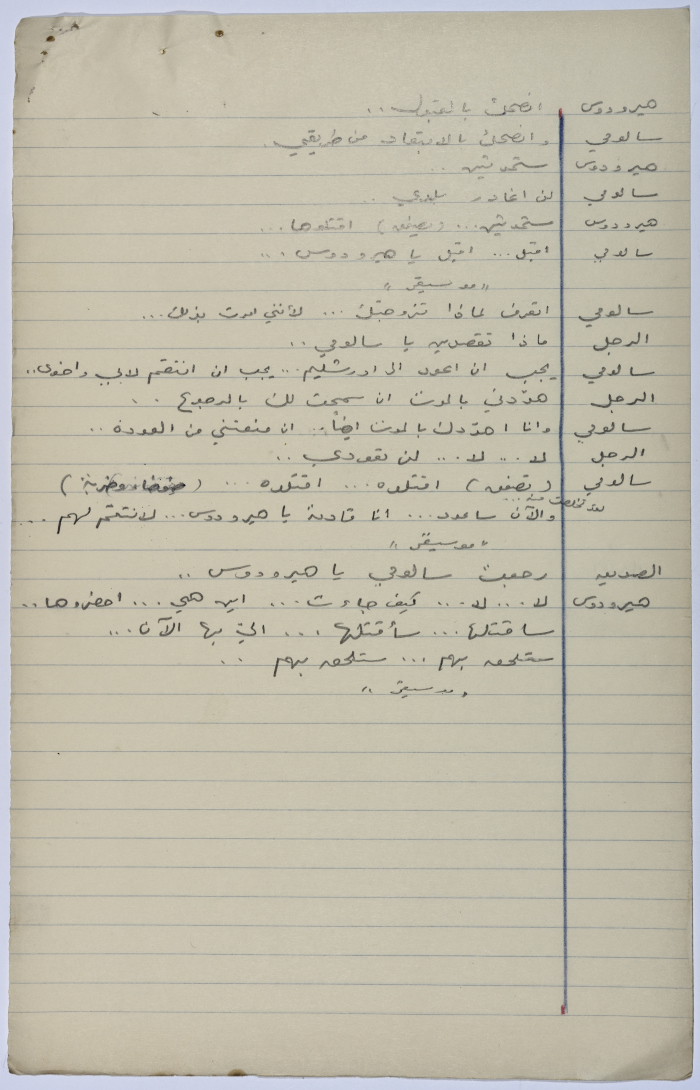 هيرودوس انصحك بالقبول..
سالومي وانصحك بالابتعاد من طريقي.
هيرودوس ستموتين..
سالومي لن اغادر بلادي..
هيرودوس ستموتين... (يصفق) اقتلوها...
سالومي اقبل... اقبل يا هيرودوس...
"موسيقى"
سالومي اتعرف لماذا تزوجتك... لأنني امرت بذلك...
الرجل ماذا تقصدين يا سالومي..
سالومي يجب ان اعود الى اورشليم... يجب ان انتقم لابي واخوتي..
الرجل هددني بالموت ان سمحت لك بالرجوع..
سالومي وانا اهددك بالموت ايضاً.. ان منعتني من العودة..
الرجل لا... لا... لن تعودي..
سالومي (تصفق) اقتلوه... اقتلوه... ( )
لقد تخلصت منه...
والآن ساعود... انا قادمة يا هيرودوس... لانتقم لهم...
"موسيقى"
الصديق رجعت سالومي يا هيرودوس..
هيرودوس لا... لا... كيف جاءت... اين هي... احضروها..
ساقتلها... سأقتلها... اليّ بها الآن...
ستلحق بهم... ستلحق بهم..
"موسيقى"